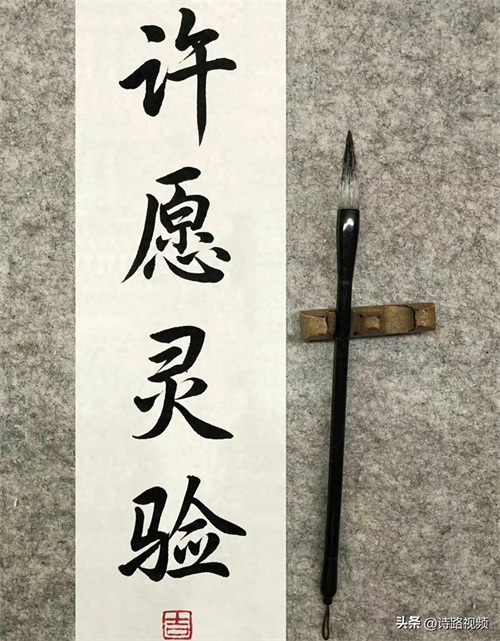 许愿灵验
吉
头条 @诗路视频